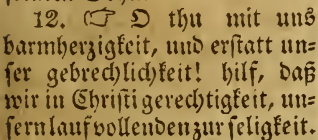 12. ☞ O thu mit uns
barmherzigkeit, und erstatt un-
ser gebrechlichkeit! hilf, daß
wir in Christi gerechtigkeit, un-
sern lauf vollenden zur seligkeit.